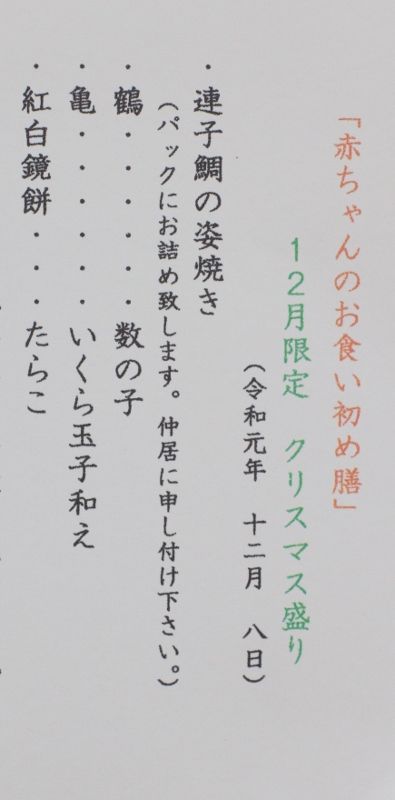 「赤ちゃんのお食い初め膳」
12月限定 クリスマス盛り
(令和元年 十二月 八日)
・連子鯛の姿焼き
(パックにお詰め致します。仲居に申し付け下さい。)
・鶴・・・・・・数の子
・亀・・・・・・いくら玉子和え
・紅白鏡餅・・・たらこ